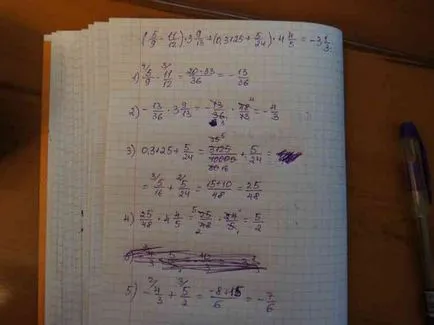 (5/9 - 11/12) · 3 9/13 + (0,3125 + 5/24) · 4 4/5 = -3 1/3
1) 5/9 - 11/12 = 20-33/36 = -13/36
2) -13/36 · 3 9/13 = -13/36 · 48/13 = -4/3
3) 0,3125 + 5/24 = 3125/10000 + 5/24 =
= 5/16 + 5/24 = 15+10/48 = 25/48
4) 25/48 · 4 4/5 = 25/48 · 24/5 = 5/2
5) -4/3 + 5/2 = -8+15/6 = -7/6